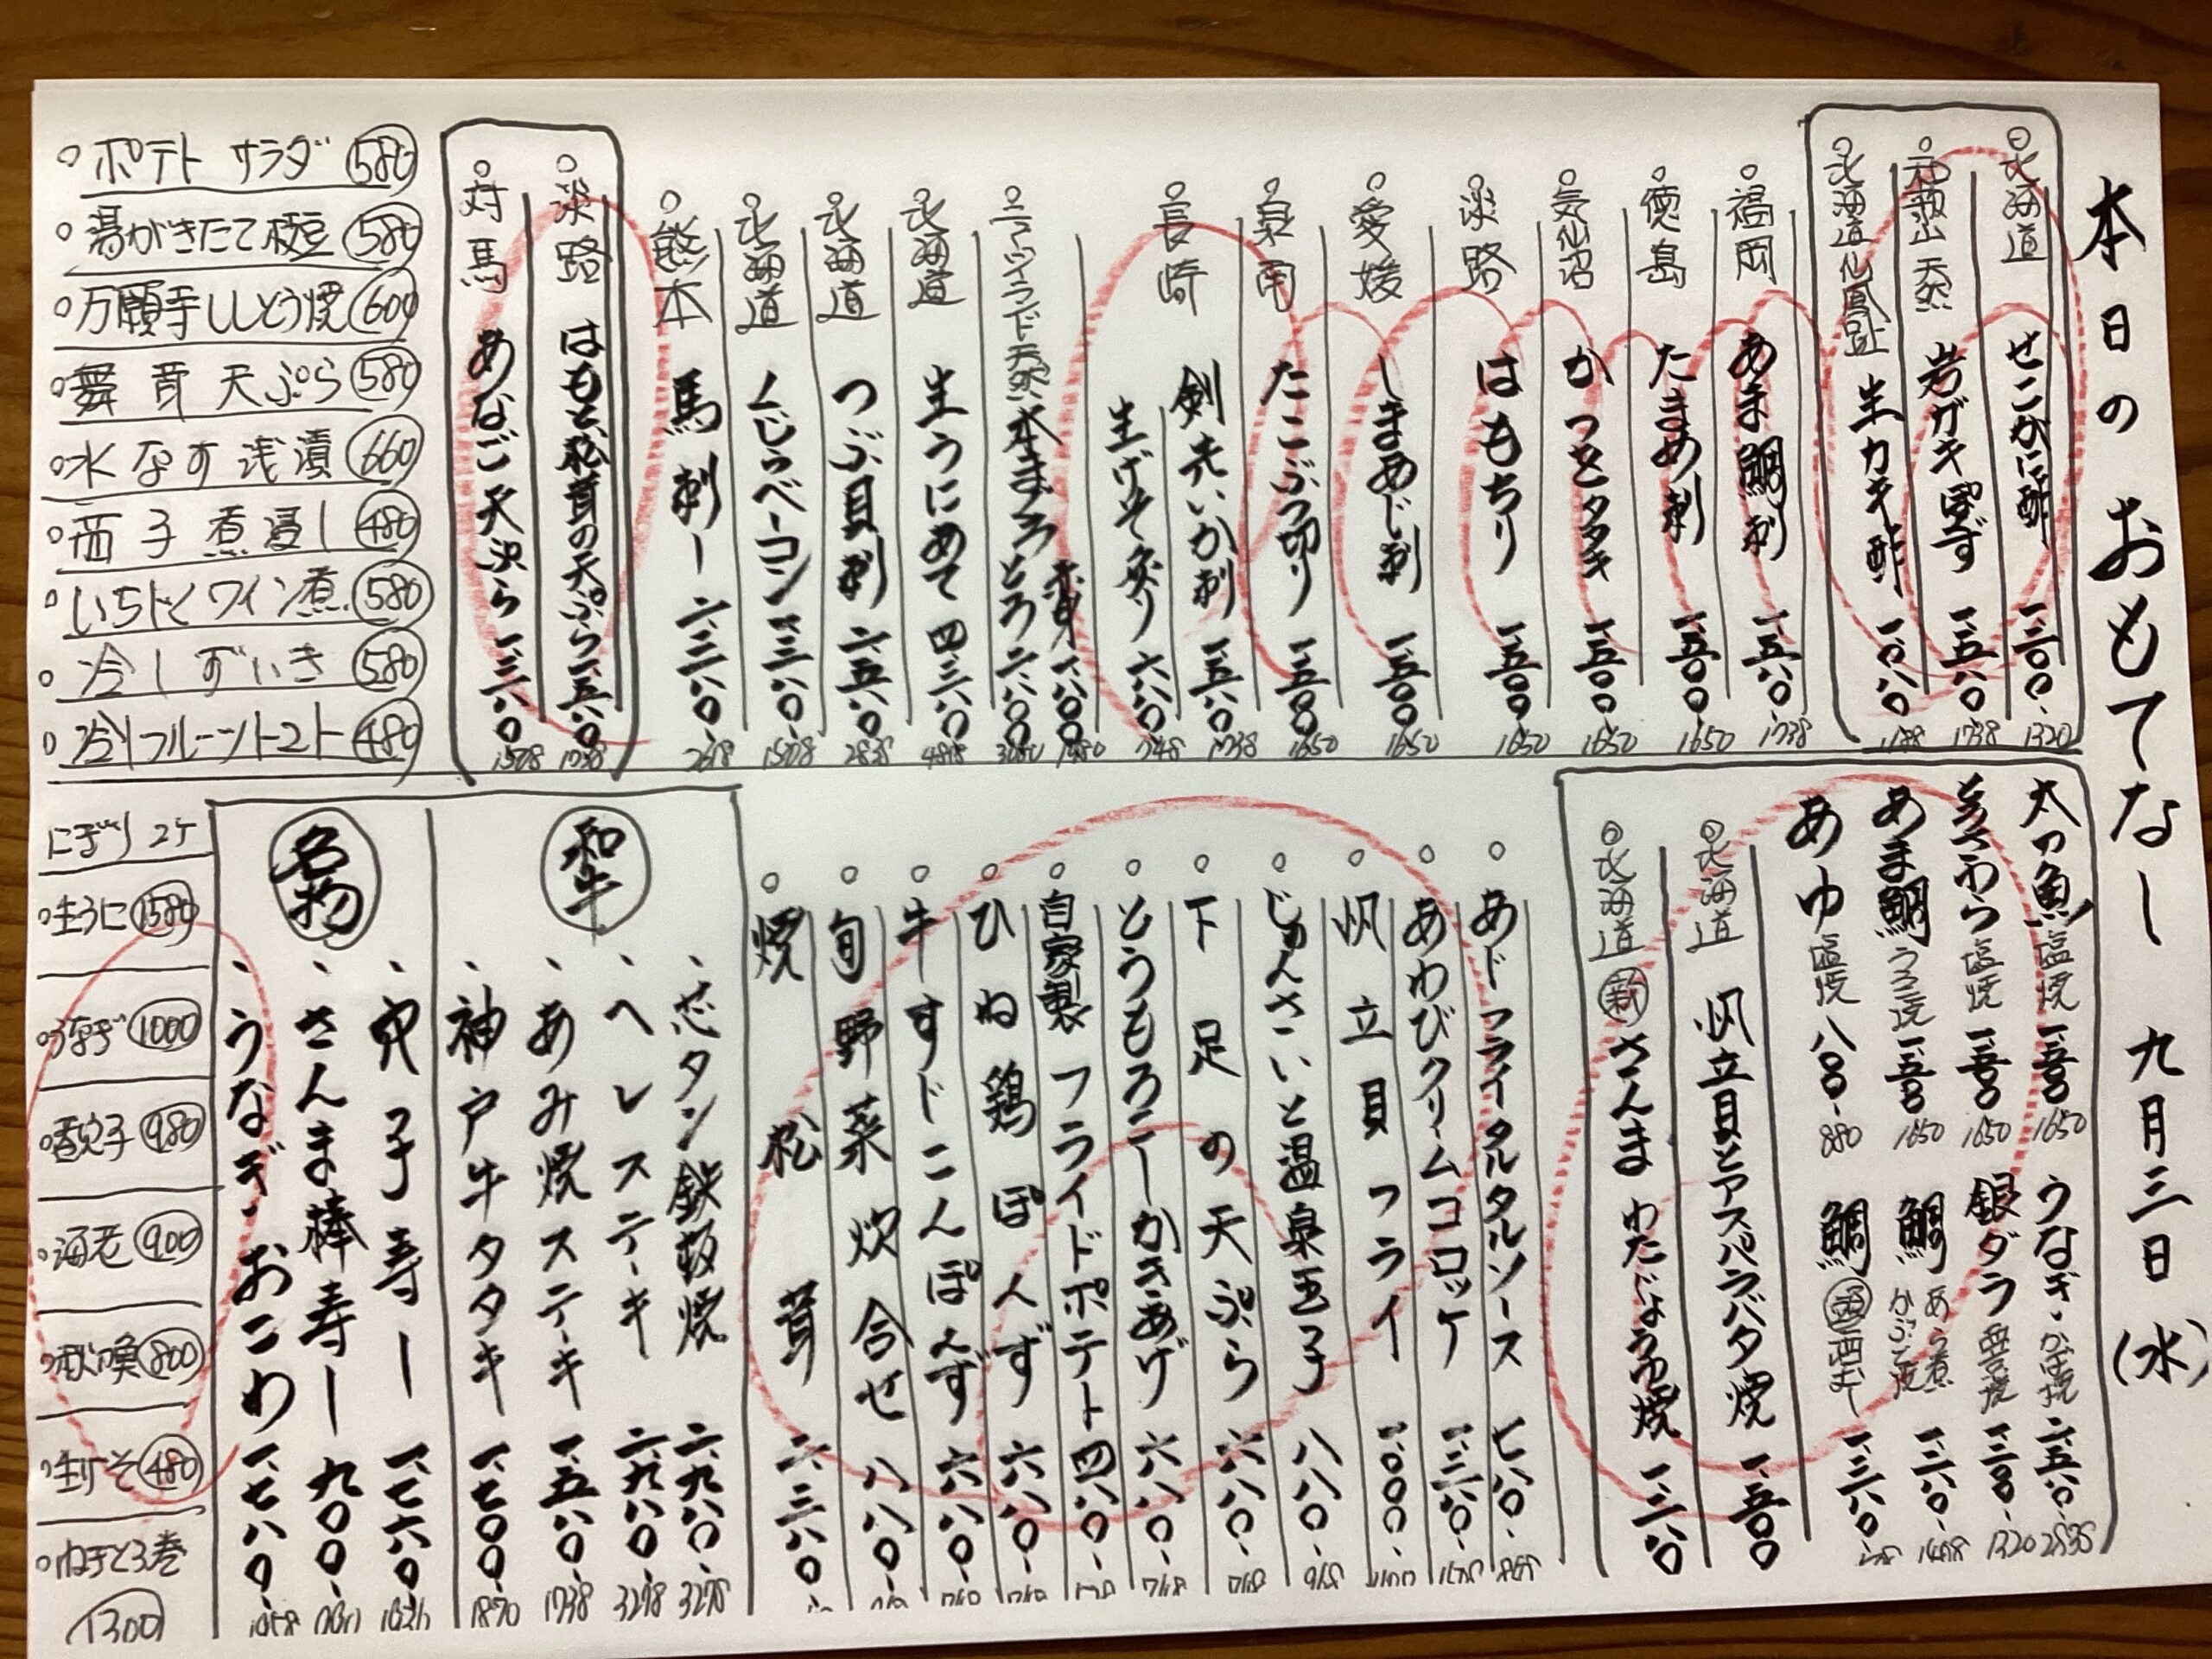 本日のおもてなし 九月三日(水)
北海道 せこがに酢 一、二〇〇 1320
和歌山 天然 岩ガキぽず 一、五八〇 1738
北海道仙鳳趾 生カキ酢 一、〇八〇 1188
福岡 あま鯛刺 一、五八〇 1738
徳島 たまめ刺 一、五〇〇 1650
気仙沼 かつをタタキ 一、五〇〇 1650
淡路 はもちり 一、五〇〇 1650
愛媛 しまあじ刺 一、五〇〇 1650
泉南 たこぶつ切り 一、五〇〇 1650
長崎 剣先いか刺 一、五八〇 1738
生げそ炙り 六八〇 748
ニュージーランド天然本まぐろ 赤身 一、八〇〇 1980
とろ 二、八〇〇 3080
北海道 生うにあて 四、三八〇 4818
北海道 つぶ貝刺 二、五八〇 2838
北海道 くじらベーコン 一、三八〇 1508
熊本 馬刺し 二、三八〇 2618
淡路 はもと松茸の天ぷら 一、五八〇 1738
対馬 あなご天ぷら 一、三八〇 1508
ポテトサラダ 580
湯がきたて枝豆 580
万願寺ししとう焼 600
舞茸天ぷら 580
水なす浅漬 660
茄子煮浸し 480
いちじくワイン煮 580
冷しずいき 580
冷しフルーツトマト 480
太刀魚 塩焼 一、五〇〇 1650
うなぎ・かば焼 二、五八〇 2838
とろさわら 塩焼 一、五〇〇 1650
銀ダラ 西京焼 一、二〇〇 1320
あま鯛 うろこ焼 一、五〇〇 1650
鯛 あら煮 かぶと焼 一、二八〇 1408
あゆ 塩焼 八〇〇 880
鯛 酒むし 一、三八〇
北海道 帆立貝とアスパラバタ焼 一、五〇〇
北海道 新 さんま わたじょうゆ焼 一、二八〇
あじフライタルタルソース 七八〇 858
あわびクリームコロッケ 一、三八〇 1508
帆立貝フライ 一、〇〇〇 1100
じゅんさいと温泉玉子 八八〇 968
下足の天ぷら 六八〇 748
とうもろこしかきあげ 六八〇 748
自家製フライドポテト 四八〇
ひね鶏ぽんず 六八〇 748
牛すじこんぽんず 六八〇 748
旬野菜炊合せ 八八〇
焼松茸 二、三八〇
和牛
芯タン鉄板焼 二、九八〇 3278
ヘレステーキ 二、九八〇 3278
あみ焼ステーキ 一、五八〇 1738
神戸牛タタキ 一、七〇〇 1870
名物
穴子寿し 一、七六〇
さんま棒寿し 九〇〇
うなぎ・おこわ 一、七八〇 1958
にぎり2ケ
生うに 1580
うなぎ 1000
海老 900
生げそ 480
ねぎとろ巻 1300